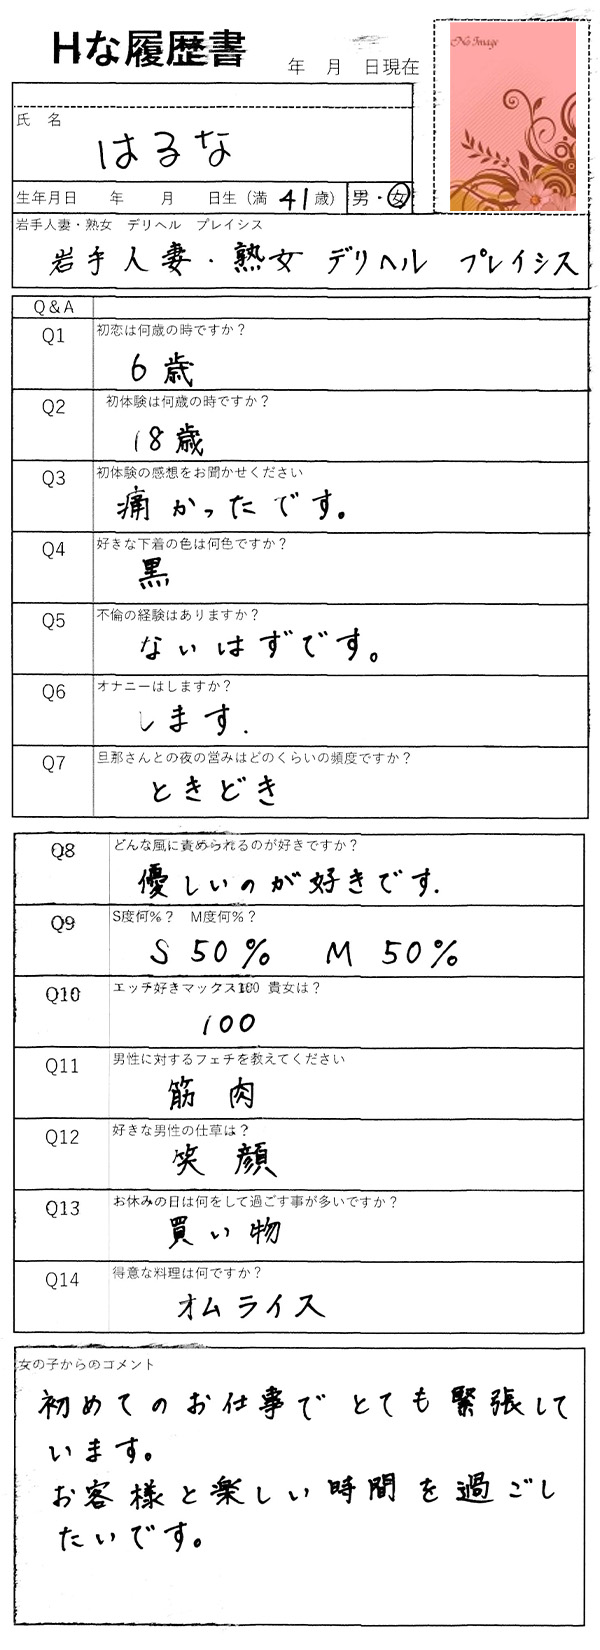 Hな履歴書
年 月 日現在
No Image
氏 名
はるな
生年月日 年 月 日生 (満 41 歳) 男・女
岩手人妻・熟女 デリヘル プレイシス
岩手人妻・熟女 デリヘル プレイシス
Q&A
Q1 初恋は何歳の時ですか?
6歳
Q2 初体験は何歳の時ですか?
18歳
Q3 初体験の感想をお聞かせください
痛かったです。
Q4 好きな下着の色は何色ですか?
黒
Q5 不倫の経験はありますか?
ないはずです。
Q6 オナニーはしますか?
します.
Q7 旦那さんとの夜の営みはどのくらいの頻度ですか?
ときどき
Q8 どんな風に責められるのが好きですか?
優しいのが好きです.
Q9 S度何%? M度何%?
S 50% M 50%
Q10 エッチ好きマックス100 貴女は?
100
Q11 男性に対するフェチを教えてください
筋肉
Q12 好きな男性の仕草は?
笑顔
Q13 お休みの日は何をして過ごす事が多いですか?
買い物
Q14 得意な料理は何ですか?
オムライス
女の子からのコメント
初めてのお仕事でとても緊張して
います。
お客様と楽しい時間を過ごし
たいです。